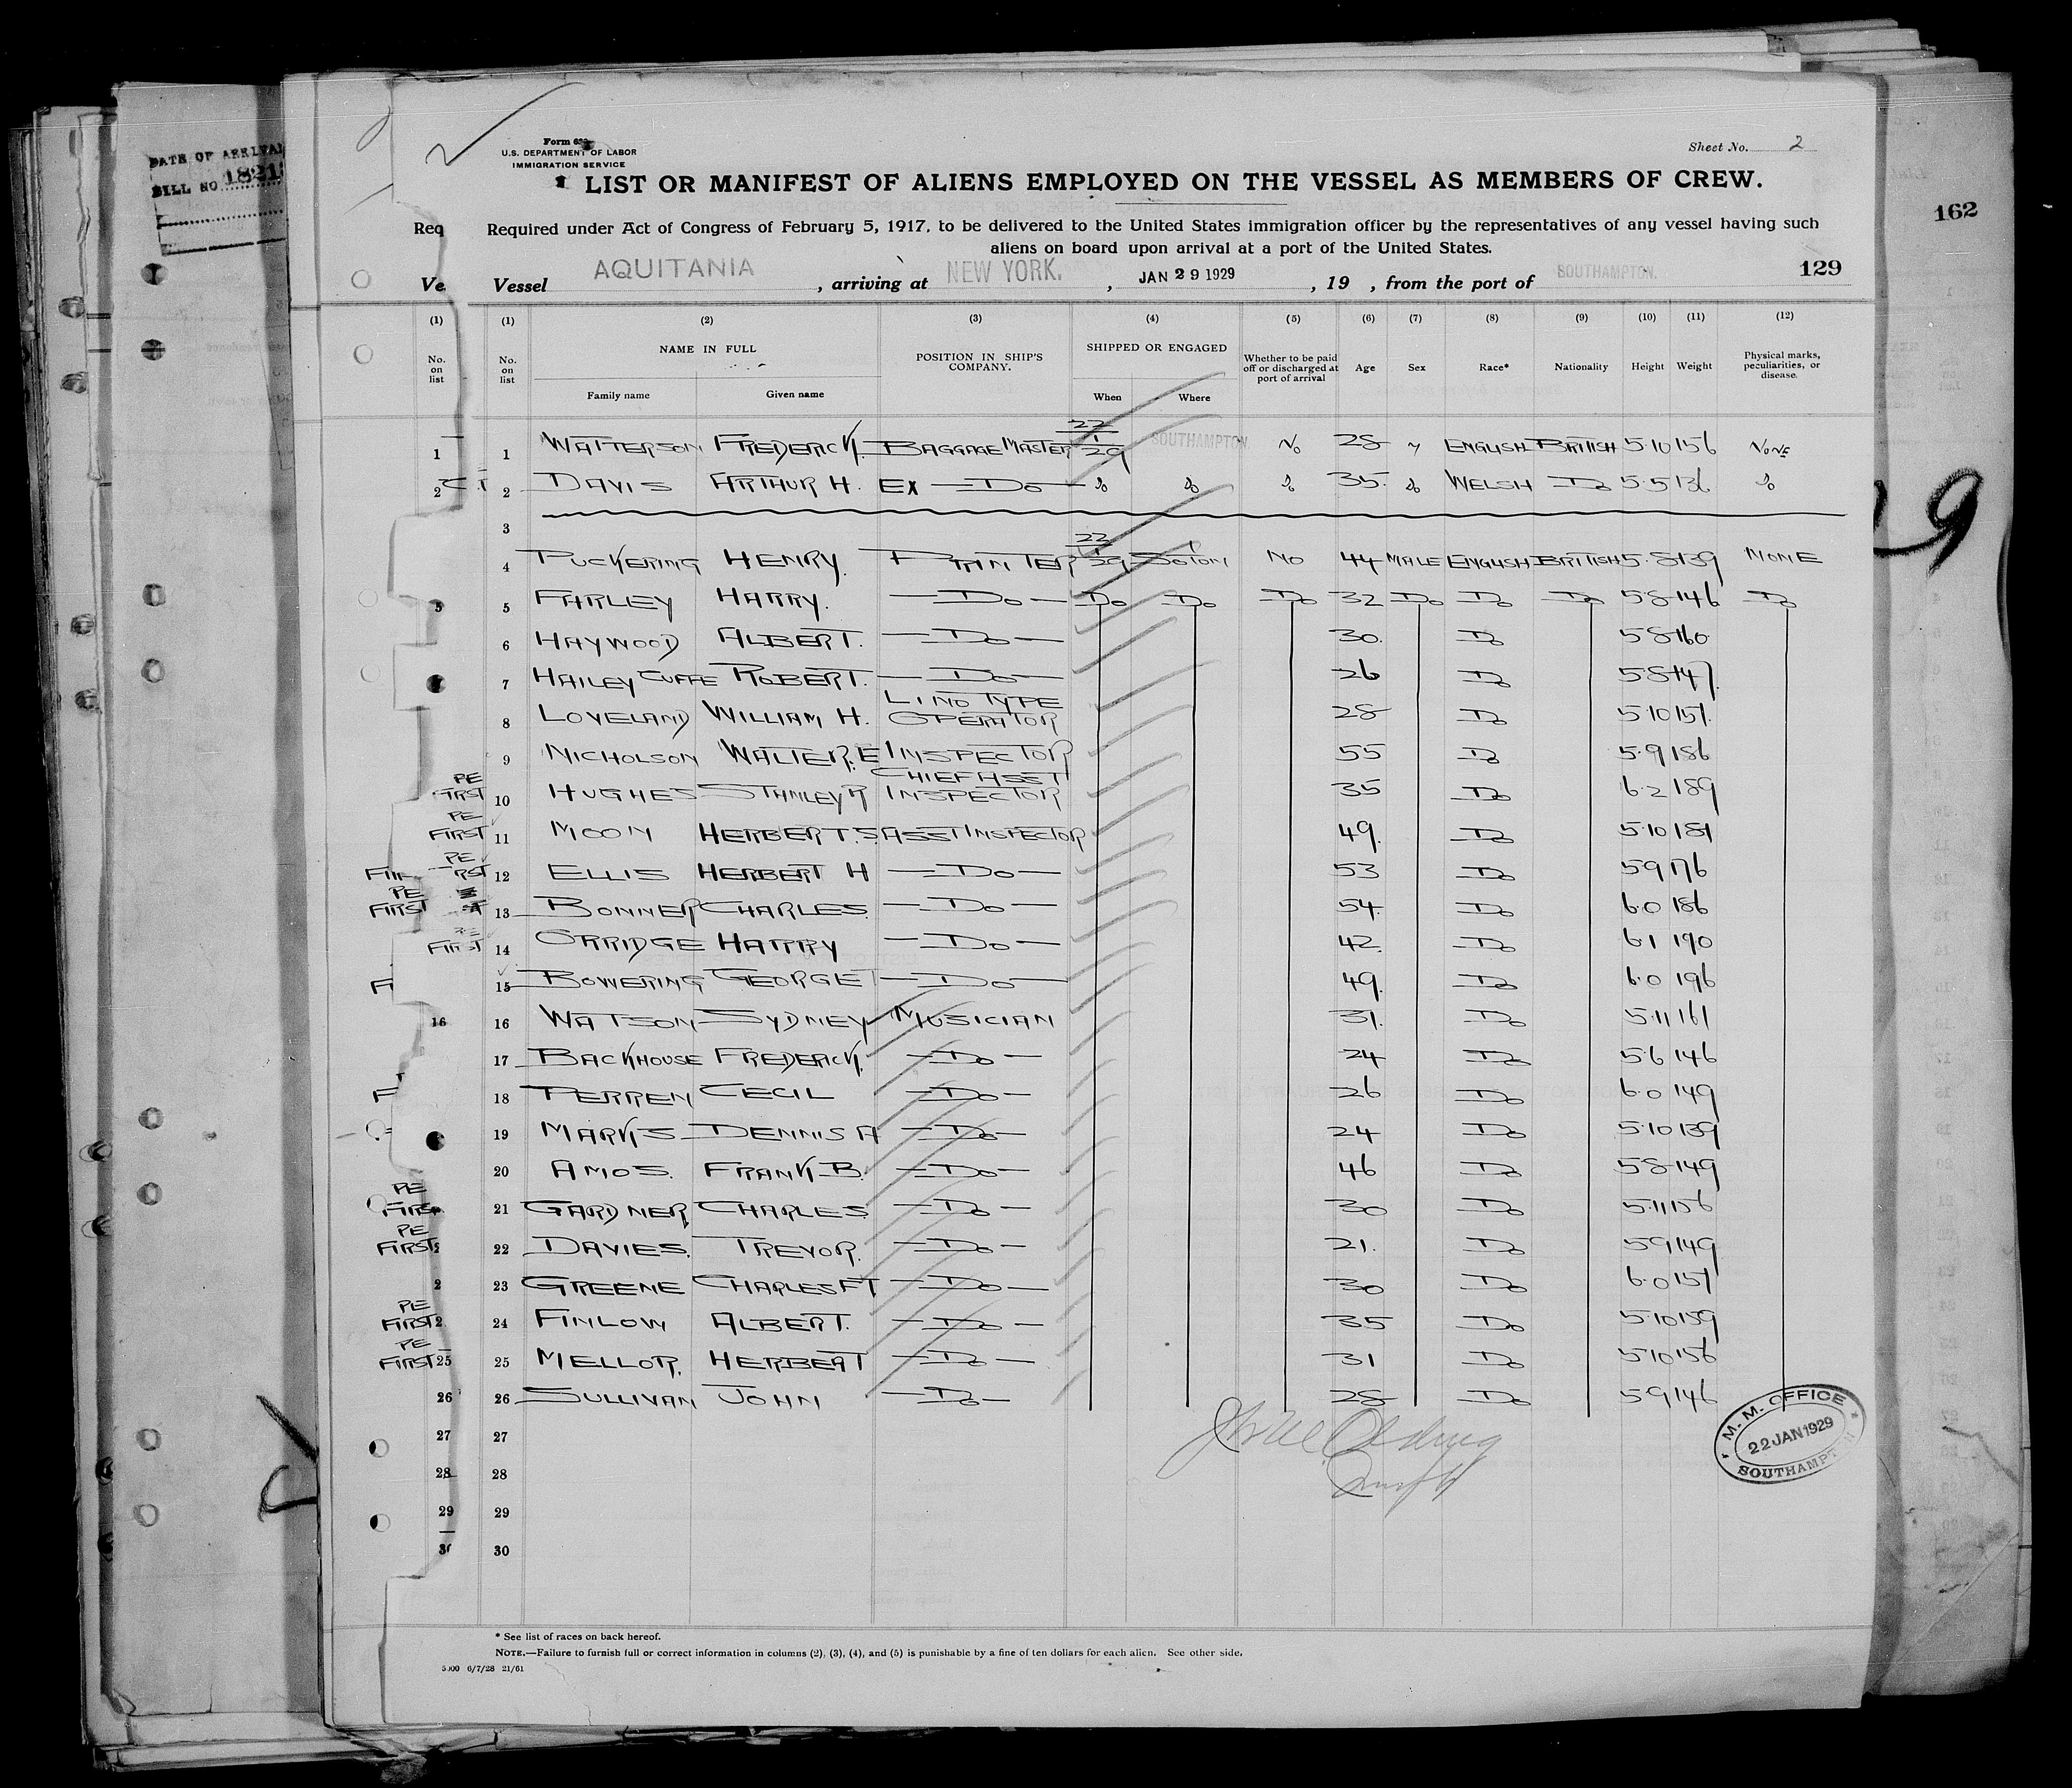 DATE OF ARRIVAL
BILL NO. 1821
Form 689
U.S. DEPARTMENT OF LABOR
IMMIGRATION SERVICE
Sheet No. 2
LIST OR MANIFEST OF ALIENS EMPLOYED ON THE VESSEL AS MEMBERS OF CREW.
162
Req Required under Act of Congress of February 5, 1917, to be delivered to the United States immigration officer by the representatives of any vessel having such
aliens on board upon arrival at a port of the United States.
Ve Vessel AQUITANIA, arriving at NEW YORK., JAN 29 1929, 19 , from the port of SOUTHAMPTON. 129
(1) (1) (2) (3) (4) (5) (6) (7) (8) (9) (10) (11) (12)
No. on list No. on list NAME IN FULL POSITION IN SHIP'S COMPANY. SHIPPED OR ENGAGED Whether to be paid off or discharged at port of arrival Age Sex Race* Nationality Height Weight Physical marks, peculiarities, or disease.
Family name Given name When Where
1 1 WATTERSON FREDERICK. BAGGAGE MASTER 22/1/29 SOUTHAMPTON No 28 M ENGLISH BRITISH 5.10 156 NONE
2 2 DAVIS ARTHUR H. EX — Do — Do Do Do 35. Do WELSH Do 5.5 136 Do
3
4 PUCKERING HENRY. PRINTER 22/1/29 SOTON NO 44 MALE ENGLISH BRITISH 5.8 139 NONE
5 5 FARLEY HARRY. — Do — Do Do Do 32 Do Do Do 5 8 146 Do
6 HAYWOOD ALBERT. — Do — 30. Do 5 8 160
7 HAILEY CUFFE ROBERT. — Do — 26 Do 5 8 147
8 LOVELAND WILLIAM H. LINOTYPE OPERATOR 28 Do 5.10 151.
9 NICHOLSON WALTER.E INSPECTOR 55 Do 5.9 186
PE FIRST 10 HUGHES STANLEY R CHIEF ASST INSPECTOR 35 Do 6.2 189
PE FIRST 11 MOON HERBERT.S. ASST INSPECTOR 49. Do 5.10 181
PE 12 ELLIS HERBERT H — Do — 53 Do 5 9 176
PE FIRST 13 BONNER CHARLES. — Do — 54. Do 6.0 186
FIRST 14 ORRIDGE HARRY — Do — 42. Do 6.1 190
F 15 BOWERING GEORGE T — Do — 49. Do 6.0 196
16 16 WATSON SYDNEY MUSICIAN 31. Do 5.11 161
17 BACKHOUSE FREDERICK. — Do — 24 Do 5.6 146
F 18 PERREN CECIL — Do — 26 Do 6.0 149
19 MARKS DENNIS A — Do — 24 Do 5.10 139
20 AMOS. FRANK B. — Do — 46 Do 5 8 149
PE FIRST 21 GARDNER CHARLES. — Do — 30 Do 5.11 156
PE FIRST 22 DAVIES. TREVOR. — Do — 21. Do 5 9 149
2 23 GREENE CHARLES F T — Do — 30 Do 6.0 151
PE FIRST 2 24 FINLOW ALBERT. — Do — 35 Do 5.10 159
PE FIRST 25 25 MELLOR. HERBERT — Do — 31 Do 5 10 156
26 26 SULLIVAN JOHN — Do — 28 Do 5 9 146
M. M. OFFICE
22 JAN 1929
SOUTHAMPTON
27 27
28 28
29 29
30 30
* See list of races on back hereof.
NOTE.—Failure to furnish full or correct information in columns (2), (3), (4), and (5) is punishable by a fine of ten dollars for each alien. See other side.
5000 6/7/28 21/61